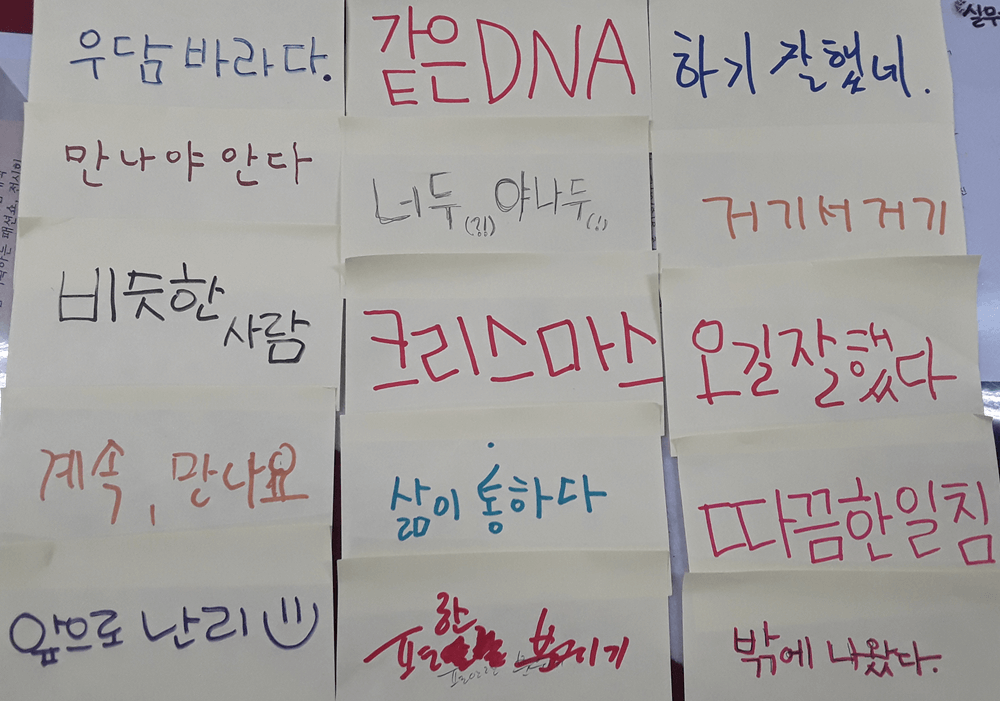 우담바라다.
같은DNA
하기 잘했네.
만나야 안다
너두(김) 야나두(!)
거기서거기
비듯한
사람
크리스마스
오길잘했다
계속, 만나요
삶이 통하다
따끔한일침
앞으로 난리
한
밖에 나왔다.